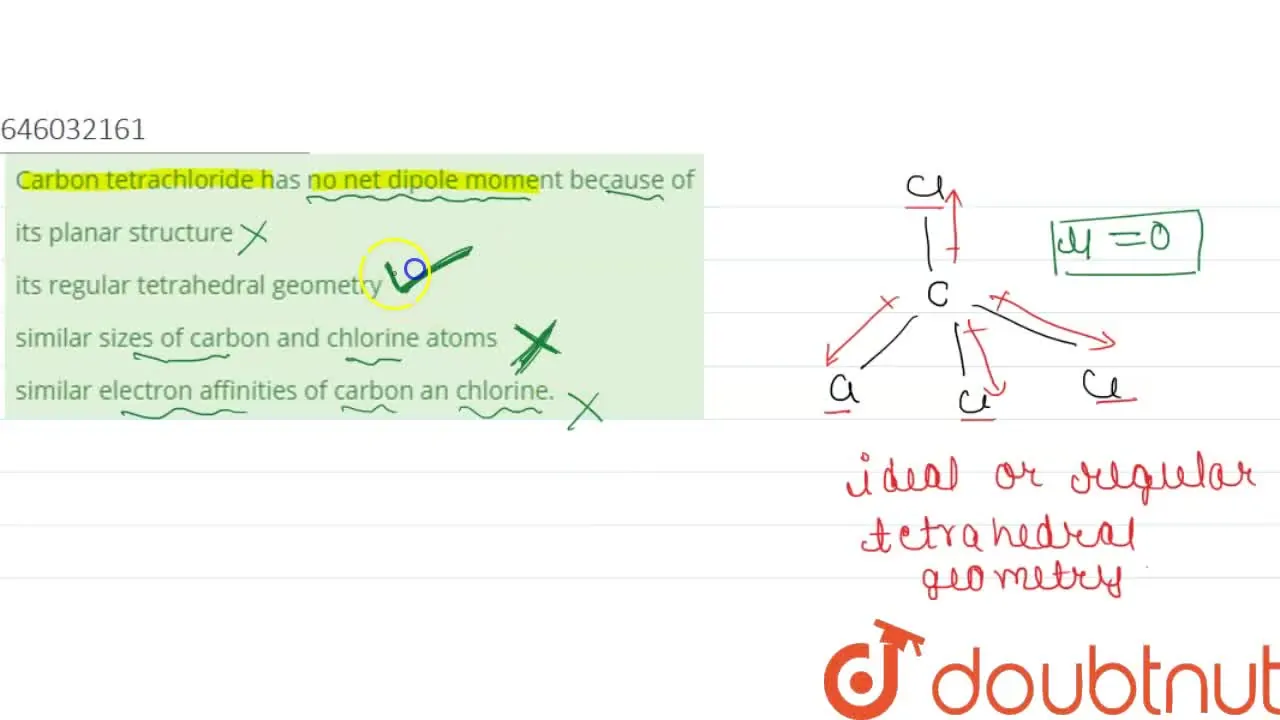 646032161
Carbon tetrachloride has no net dipole moment because of
its planar structure
its regular tetrahedral geometry
similar sizes of carbon and chlorine atoms
similar electron affinities of carbon an chlorine.
Cl
μ = 0
C
Cl Cl Cl
ideal or regular
tetrahedral
geometry
doubtnut